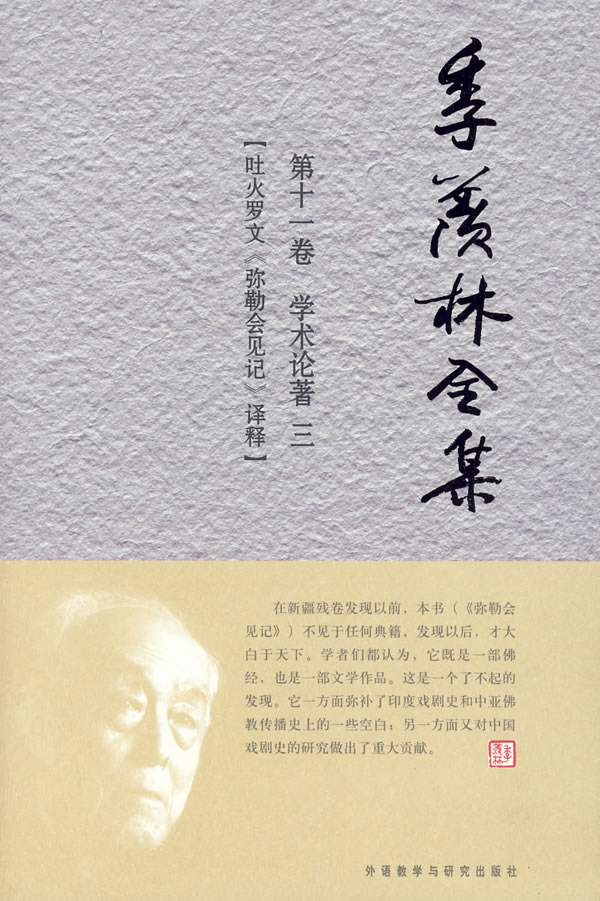 季羡林全集
第十一卷 学术论著 三
【吐火罗文《弥勒会见记》译释】
在新疆残卷发现以前，本书（《弥勒会
见记》）不见于任何典籍，发现以后，才大
白于天下。学者们都认为，它既是一部佛
经，也是一部文学作品。这是一个了不起的
发现。它一方面弥补了印度戏剧史和中亚佛
教传播史上的一些空白；另一方面又对中国
戏剧史的研究做出了重大贡献。
季羡林
外语教学与研究出版社